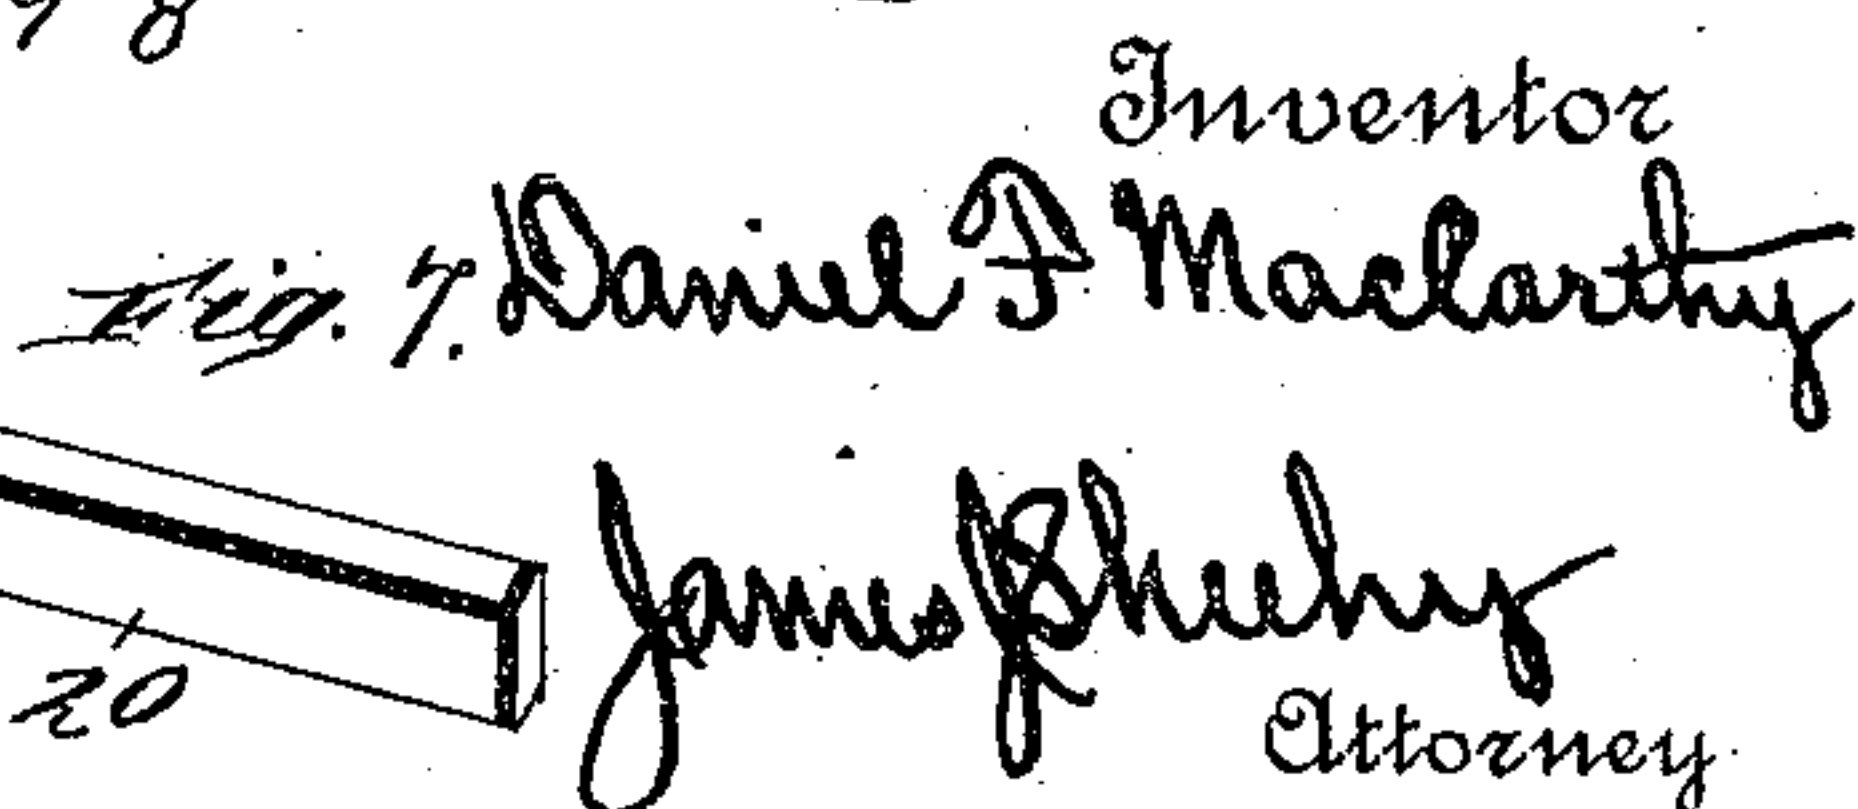 8
Inventor
Fig. 7. Daniel F Maclarthy
James J Sheehy
20
Attorney